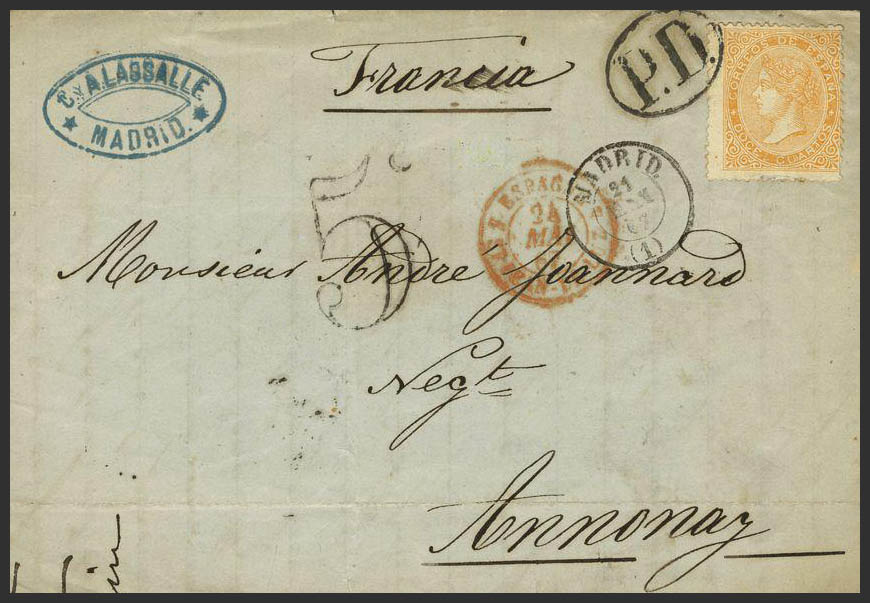 Cx A. LASSALLE
MADRID.
Francia
P.D.
CORREOS DE ESPAÑA
DOCE CUARTOS
MADRID.
21
67
(1)
ESPAG
24
MA
5
Monsieur Andre Joannard
Negt
Annonay